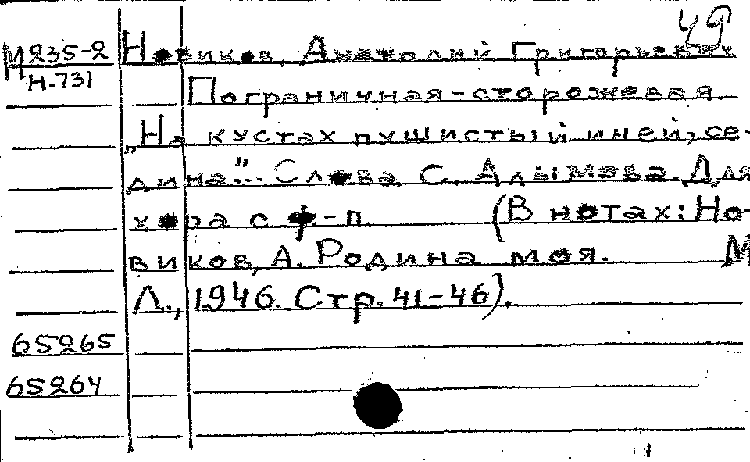 49
М235-2 Новиков, Анатолий Григорьевич
Н-731
Пограничная-сторожевая
„На кустах пушистый иней, се-
дина"... Слова С. Алымова. Для
хора с ф-п. (В нотах: Но-
виков, А. Родина моя. М
Л., 1946. Стр. 41-46).
65265
65264